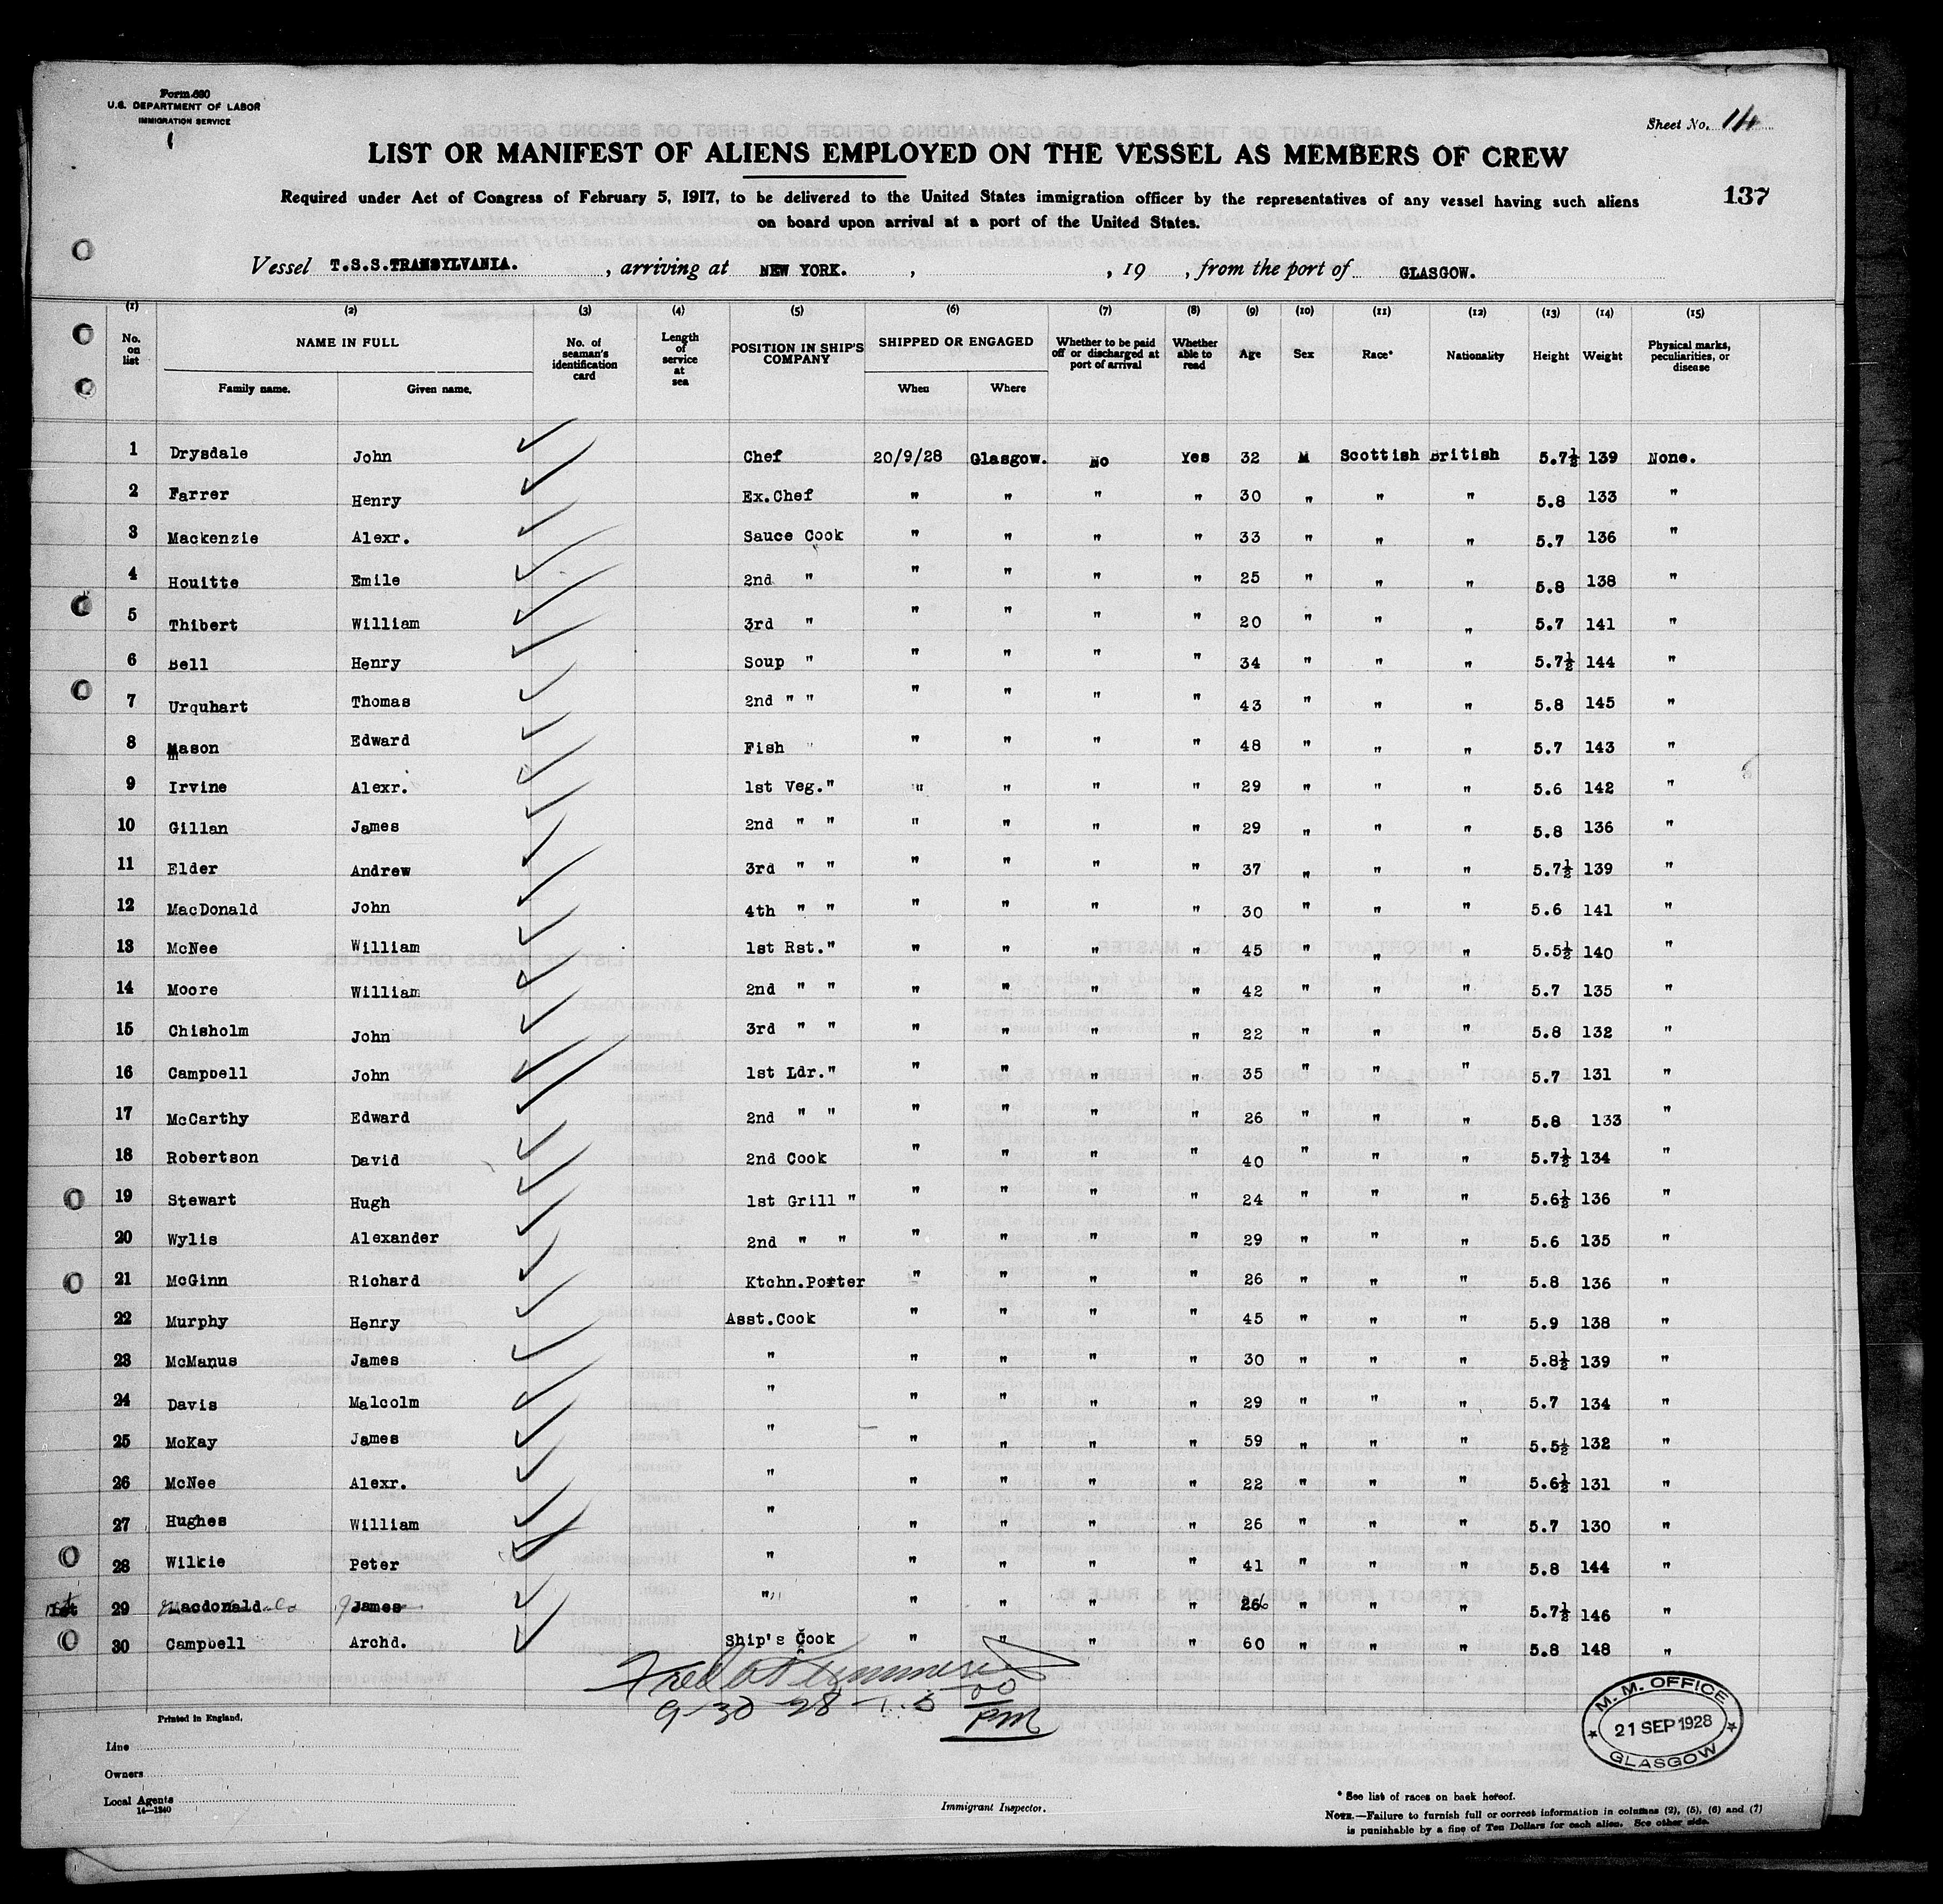 Form 680
U.S. DEPARTMENT OF LABOR
IMMIGRATION SERVICE
1
Sheet No.
LIST OR MANIFEST OF ALIENS EMPLOYED ON THE VESSEL AS MEMBERS OF CREW
137
Required under Act of Congress of February 5, 1917, to be delivered to the United States immigration officer by the representatives of any vessel having such aliens
on board upon arrival at a port of the United States.
Vessel T.S.S.TRANSYLVANIA. , arriving at NEW YORK. , , 19 , from the port of GLASGOW.
(1) (2) (3) (4) (5) (6) (7) (8) (9) (10) (11) (12) (13) (14) (15)
No. on list NAME IN FULL Family name. Given name. No. of seaman's identification card Length of service at sea POSITION IN SHIP'S COMPANY SHIPPED OR ENGAGED When Where Whether to be paid off or discharged at port of arrival Whether able to read Age Sex Race* Nationality Height Weight Physical marks, peculiarities, or disease
1 Drysdale John Chef 20/9/28 Glasgow. No Yes 32 M Scottish British 5.7½ 139 None.
2 Farrer Henry Ex.Chef " " " " 30 " " " 5.8 133 "
3 Mackenzie Alexr. Sauce Cook " " " " 33 " " " 5.7 136 "
4 Houitte Emile 2nd " " " " " 25 " " " 5.8 138 "
5 Thibert William 3rd " " " " " 20 " " " 5.7 141 "
6 Bell Henry Soup " " " " " 34 " " " 5.7½ 144 "
7 Urquhart Thomas 2nd " " " " " " 43 " " " 5.8 145 "
8 Mason Edward Fish " " " " " 48 " " " 5.7 143 "
9 Irvine Alexr. 1st Veg." " " " " 29 " " " 5.6 142 "
10 Gillan James 2nd " " " " " " 29 " " " 5.8 136 "
11 Elder Andrew 3rd " " " " " " 37 " " " 5.7½ 139 "
12 MacDonald John 4th " " " " " " 30 " " " 5.6 141 "
13 McNee William 1st Rst." " " " " 45 " " " 5.5½ 140 "
14 Moore William 2nd " " " " " " 42 " " " 5.7 135 "
15 Chisholm John 3rd " " " " " " 22 " " " 5.8 132 "
16 Campbell John 1st Ldr." " " " " 35 " " " 5.7 131 "
17 McCarthy Edward 2nd " " " " " " 26 " " " 5.8 133 "
18 Robertson David 2nd Cook " " " " 40 " " " 5.7½ 134 "
19 Stewart Hugh 1st Grill " " " " " 24 " " " 5.6½ 136 "
20 Wylis Alexander 2nd " " " " " " 29 " " " 5.6 135 "
21 McGinn Richard Ktchn.Porter " " " " 26 " " " 5.8 136 "
22 Murphy Henry Asst.Cook " " " " 45 " " " 5.9 138 "
23 McManus James " " " " " 30 " " " 5.8½ 139 "
24 Davis Malcolm " " " " " 29 " " " 5.7 134 "
25 McKay James " " " " " 59 " " " 5.5½ 132 "
26 McNee Alexr. " " " " " 22 " " " 5.6½ 131 "
27 Hughes William " " " " " 26 " " " 5.7 130 "
28 Wilkie Peter " " " " " 41 " " " 5.8 144 "
29 Macdonald James " " " " " 26 " " " 5.7½ 146 "
30 Campbell Archd. Ship's Cook " " " " 60 " " " 5.8 148 "
9-30-28
PM
Printed in England.
M. M. OFFICE
21 SEP 1928
GLASGOW
Line
Owners
Local Agents
14—1240
Immigrant Inspector.
* See list of races on back hereof.
NOTE.—Failure to furnish full or correct information in columns (2), (5), (6) and (7)
is punishable by a fine of Ten Dollars for each alien. See other side.